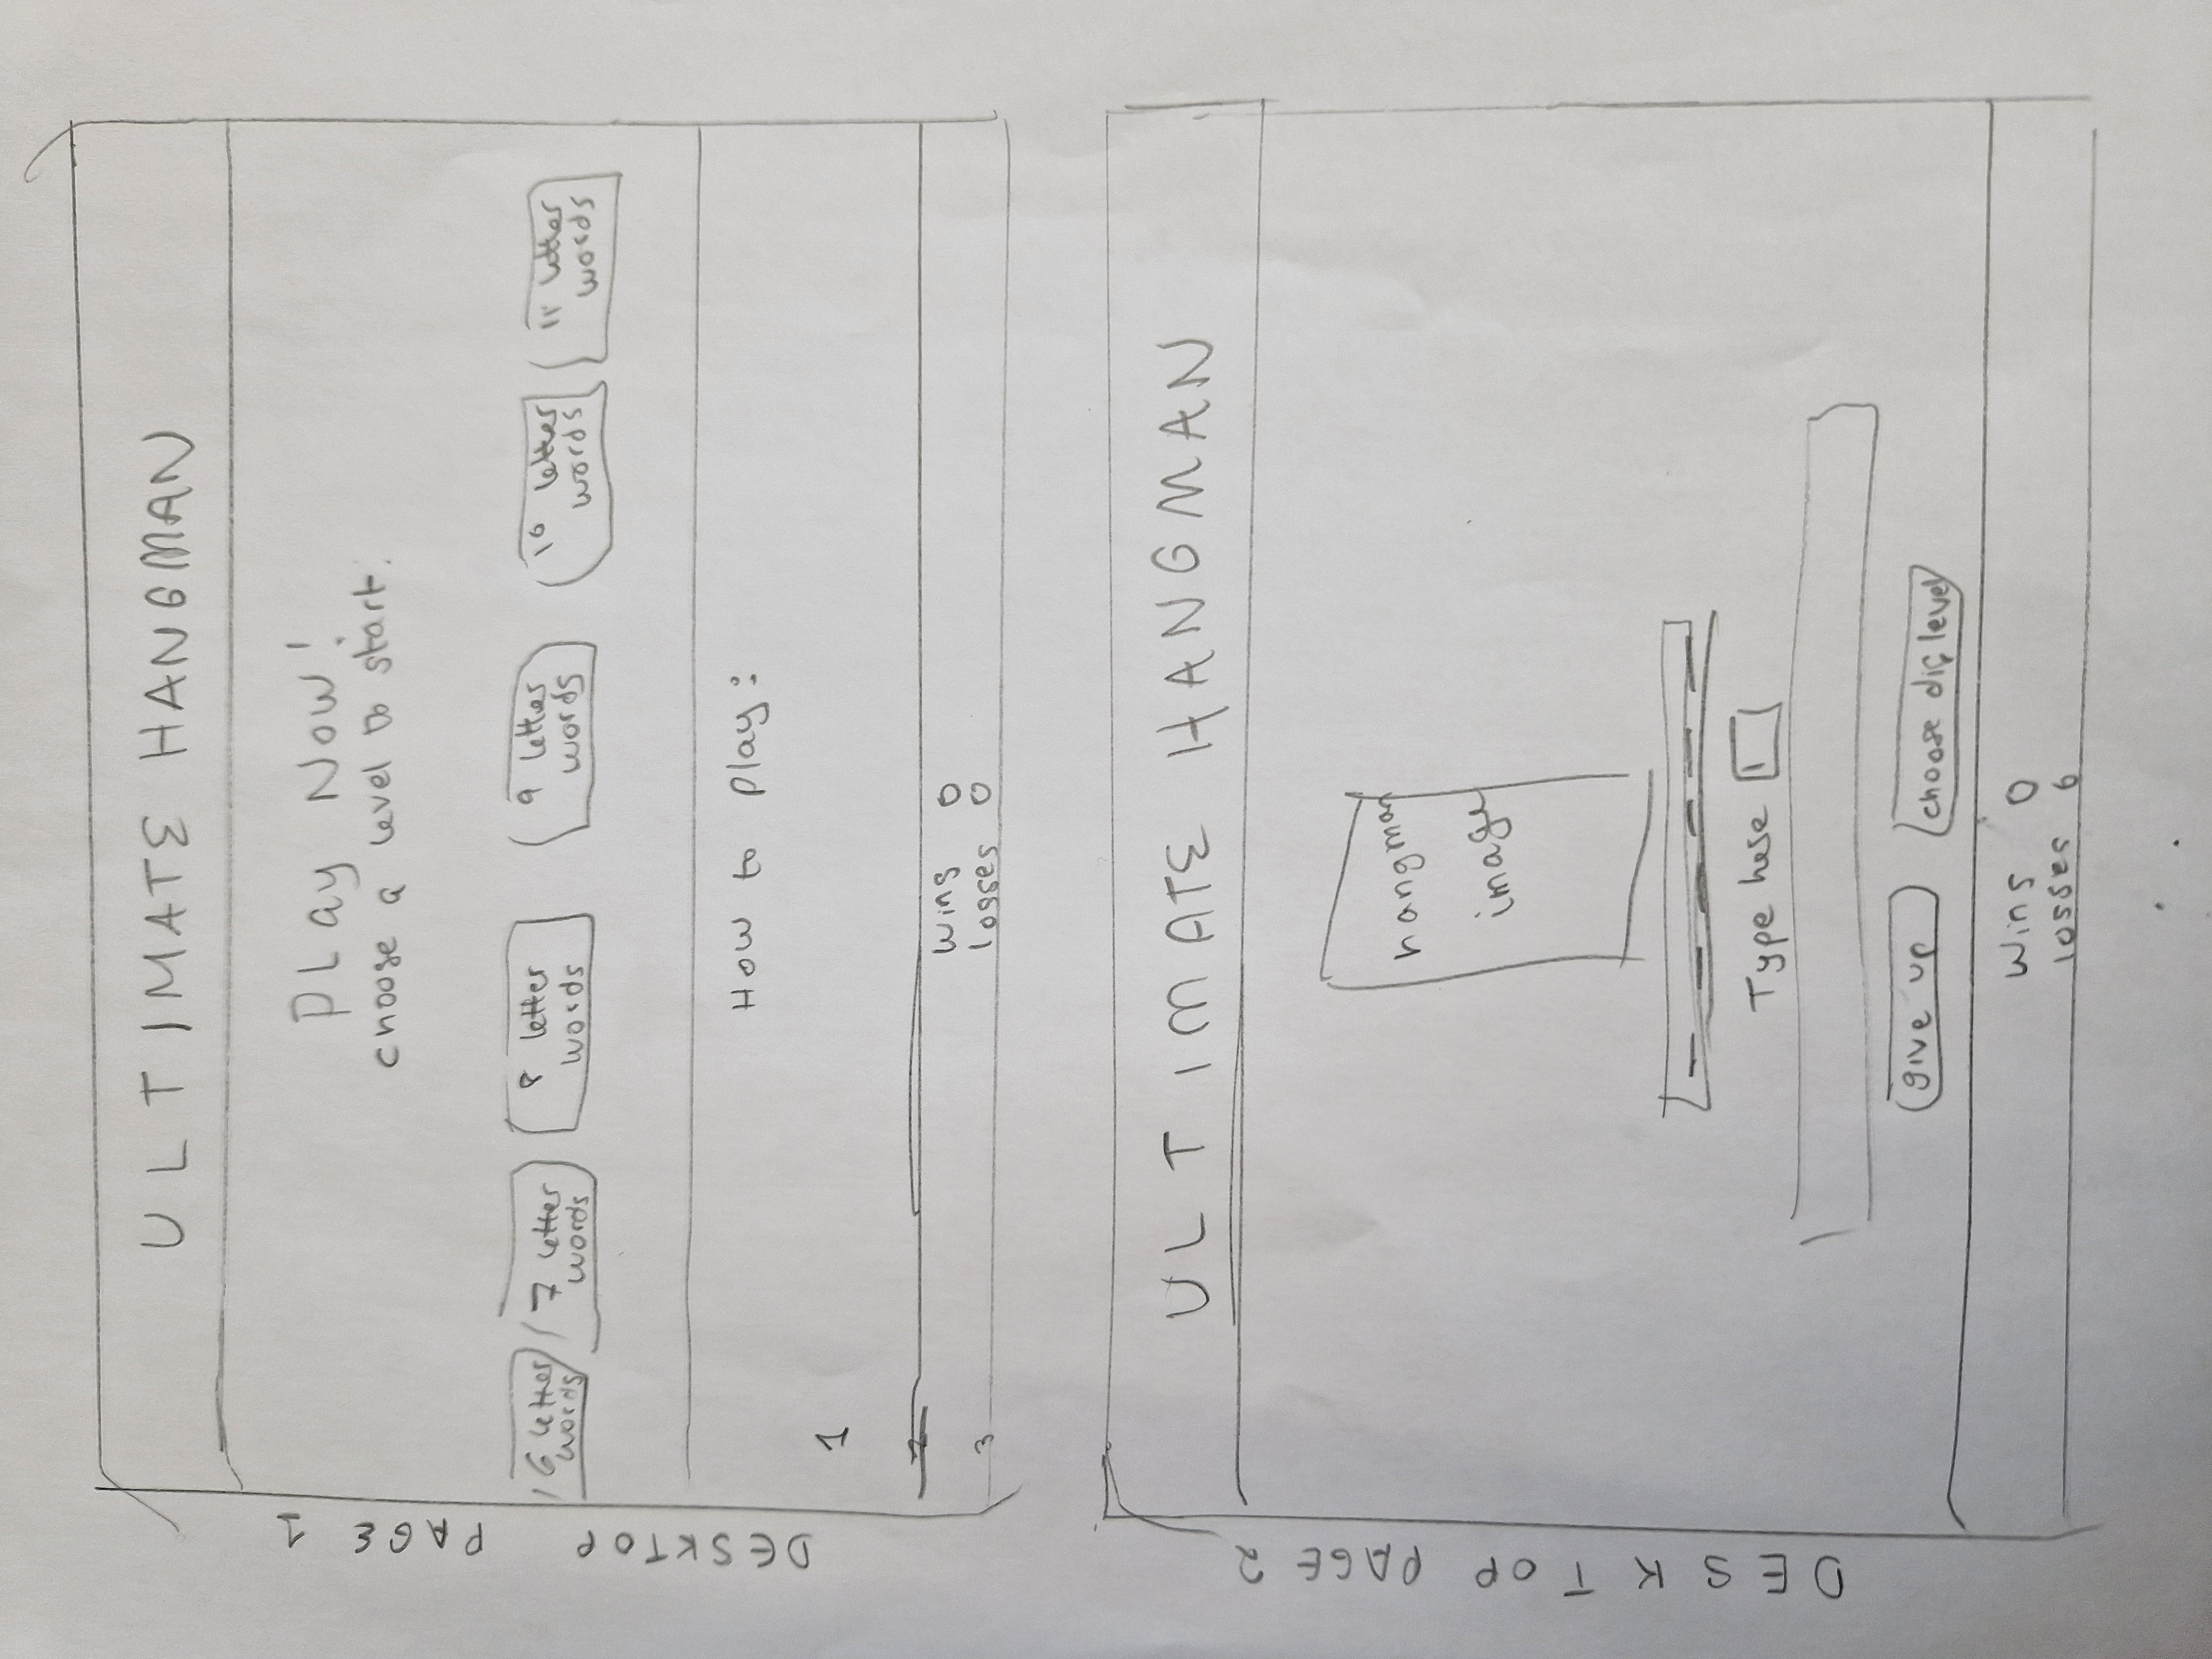 DESKTOP PAGE 1
ULTIMATE HANGMAN
Play Now!
choose a level to start.
6 letter words
7 letter words
8 letter words
9 letter words
10 letter words
11 letter words
How to play:
1
2
wins 0
3
losses 0
DESKTOP PAGE 2
ULTIMATE HANGMAN
hangman
image
Type here
give up
choose dif level
Wins 0
losses 0